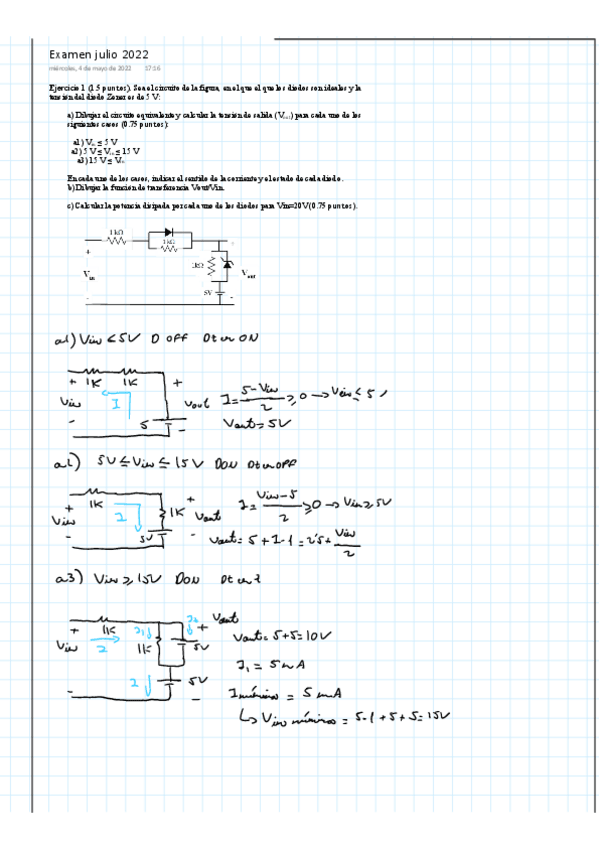 Examen julio 2022
miércoles, 4 de mayo de 2022 17:56
Ejercicio 1 (1.5 puntos). Sea el circuito de la figura, en el que el que los diodos son ideales y la
tensión del diodo Zener es de 5 V:
a) Dibujar el circuito equivalente y calcular la tensión de salida (Vout) para cada uno de los
siguientes casos (0.75 puntos):
a1) Vin ≤ 5 V
a2) 5 V ≤ Vin ≤ 15 V
a3) 15 V ≤ Vin
En cada uno de los casos, indicar el sentido de la corriente y el estado de cada diodo.
b) Dibujar la función de transferencia Vout/Vin.
c) Calcular la potencia disipada por cada uno de los diodos para Vin=20V (0.75 puntos).
1 kΩ
1kΩ
+
1kΩ
Vin
Vout
5V
-
a1) Vin < 5V D OFF Dz en ON
+ 1K 1K +
Vin I 5 Vout I = 5-Vin / 2 ≥ 0 → Vin ≤ 5
- - Vout = 5V
5V ≤ Vin ≤ 15V DON Dz en OFF
+ 1K 1K + I = Vin-5 / 2 ≥ 0 → Vin ≥ 5V
Vin I 5V Vout
- - Vout = 5 + I·1 = 2'5 + Vin / 2
a3) Vin ≥ 15V DON Dz en Z
+ 1K I1 + Vout
Vin I 1K 5V Vout = 5+5=10V
I 5V I1 = 5mA
- - I mínima = 5mA
↳ Vin mínimo = 5·1+5+5=15V